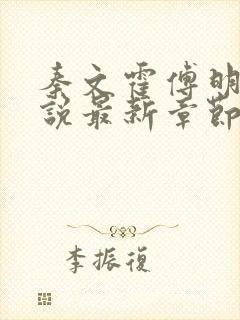 秦文霍傅明
說最新章節
李振復